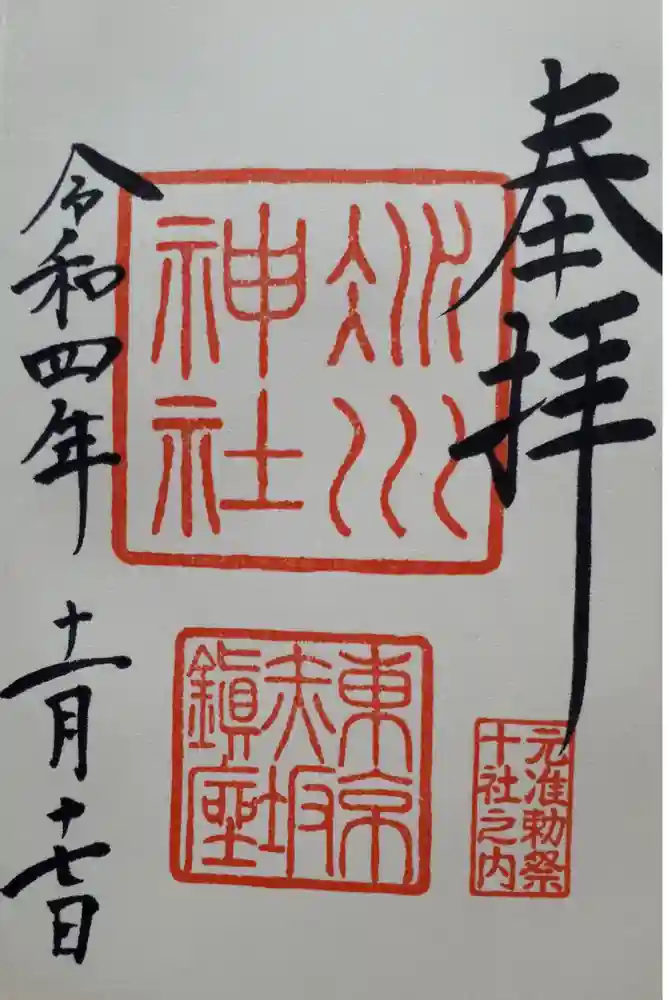 奉拝
氷川
神社
東京
赤坂
鎮座
元准勅祭
十社之内
令和四年 十一月十七日